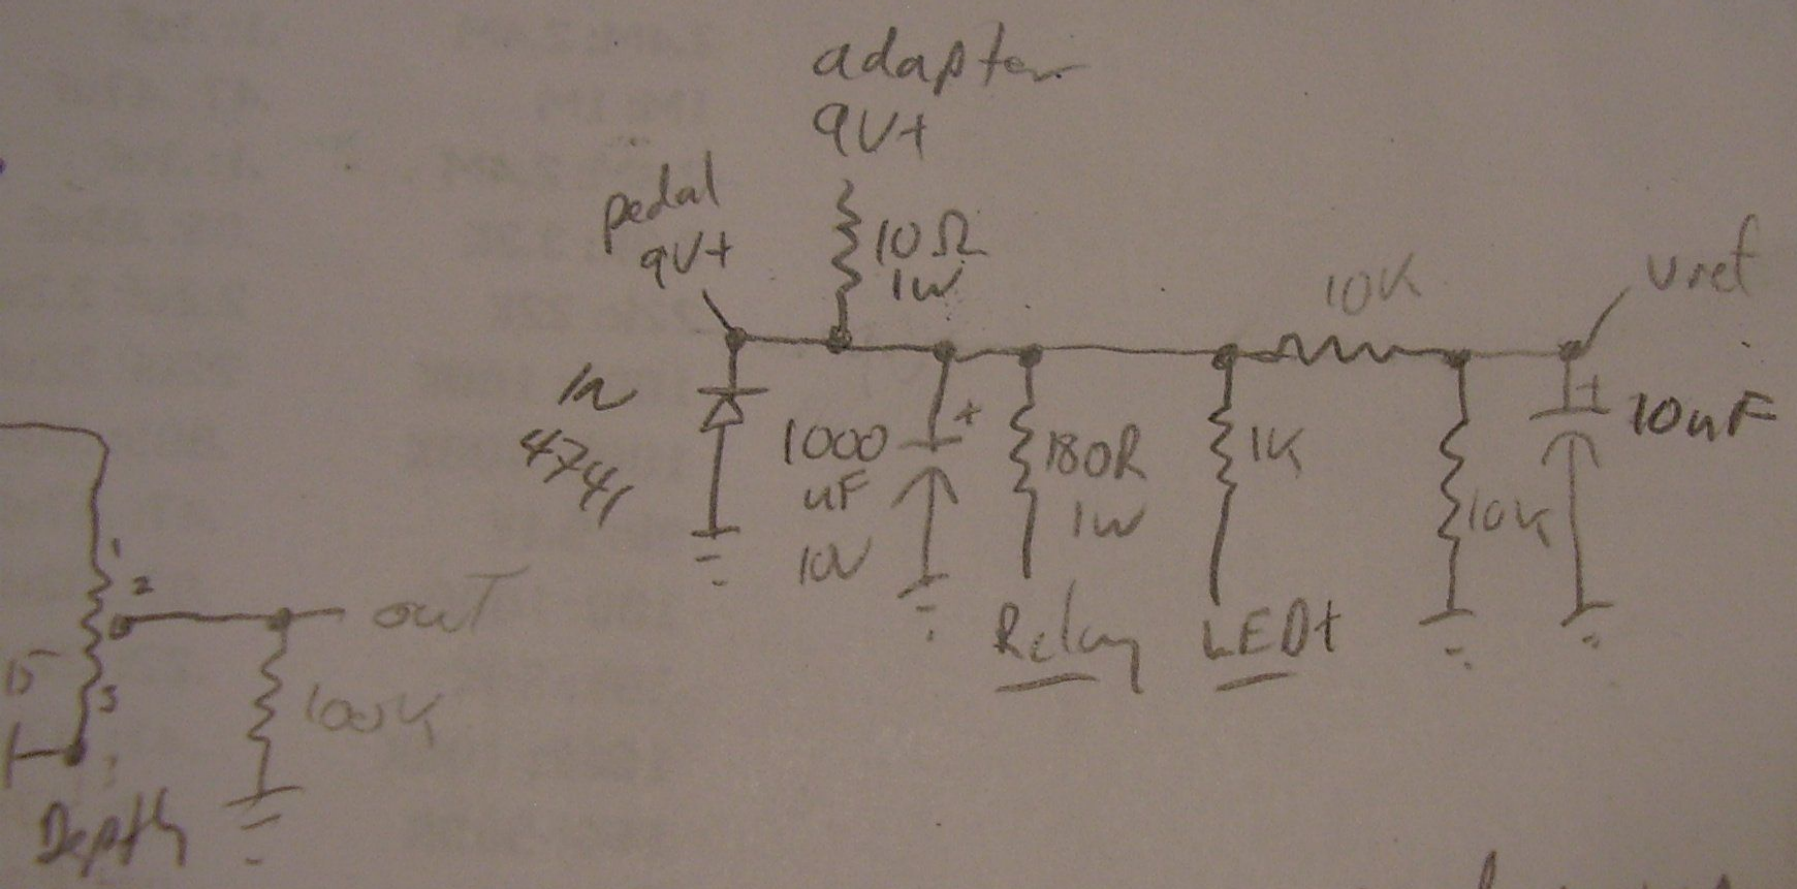 adapter
9V+
pedal
9V+
10Ω
1W
10K
Vref
1n
4741
1000
uF
10V
+
180R
1W
1K
10K
+
10uF
Relay
LED+
1
2
3
out
100K
Depth